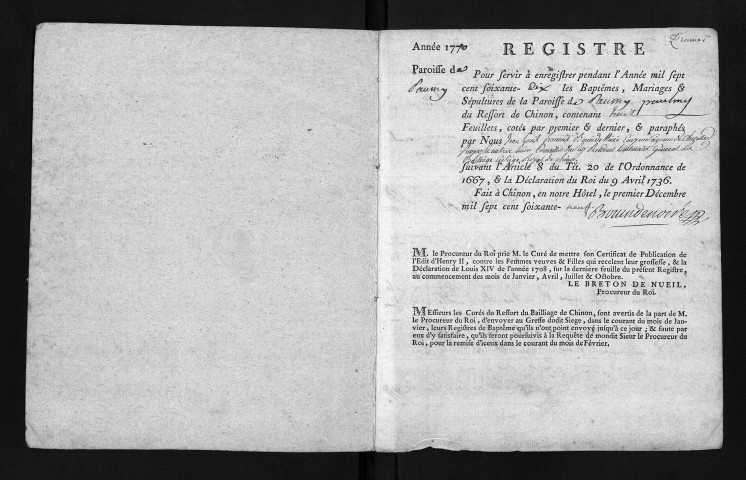 Année 1770 REGISTRE
Paroisse de
Paumy
Pour servir à enregistrer pendant l'Année mil sept
cent soixante-Dix les Baptêmes, Mariages &
Sépultures de la Paroisse de Paumy paulmy
du Ressort de Chinon, contenant huit
Feuillets, cotés par premier & dernier, & paraphés
par Nous Jean Louis
suivant l'Article 8 du Tit. 20 de l'Ordonnance de
1667, & la Déclaration du Roi du 9 Avril 1736.
Fait à Chinon, en notre Hôtel, le premier Décembre
mil sept cent soixante-neuf
M. le Procureur du Roi prie M. le Curé de mettre son Certificat de Publication de
l'Edit d'Henry II, contre les Femmes veuves & Filles qui recelent leur grossesse, & la
Déclaration de Louis XIV de l'année 1708, sur la derniere feuille du présent Registre,
au commencement des mois de Janvier, Avril, Juillet & Octobre.
LE BRETON DE NUEIL,
Procureur du Roi.
MEssieurs les Curés du Ressort du Bailliage de Chinon, sont avertis de la part de M.
le Procureur du Roi, d'envoyer au Greffe dudit Siege, dans le courant du mois de Jan-
vier, leurs Registres de Baptême qu'ils n'ont point envoyé jusqu'à ce jour ; & faute par
eux d'y satisfaire, qu'ils seront poursuivis à la Requête de mondit Sieur le Procureur du
Roi, pour la remise d'iceux dans le courant du mois de Février.